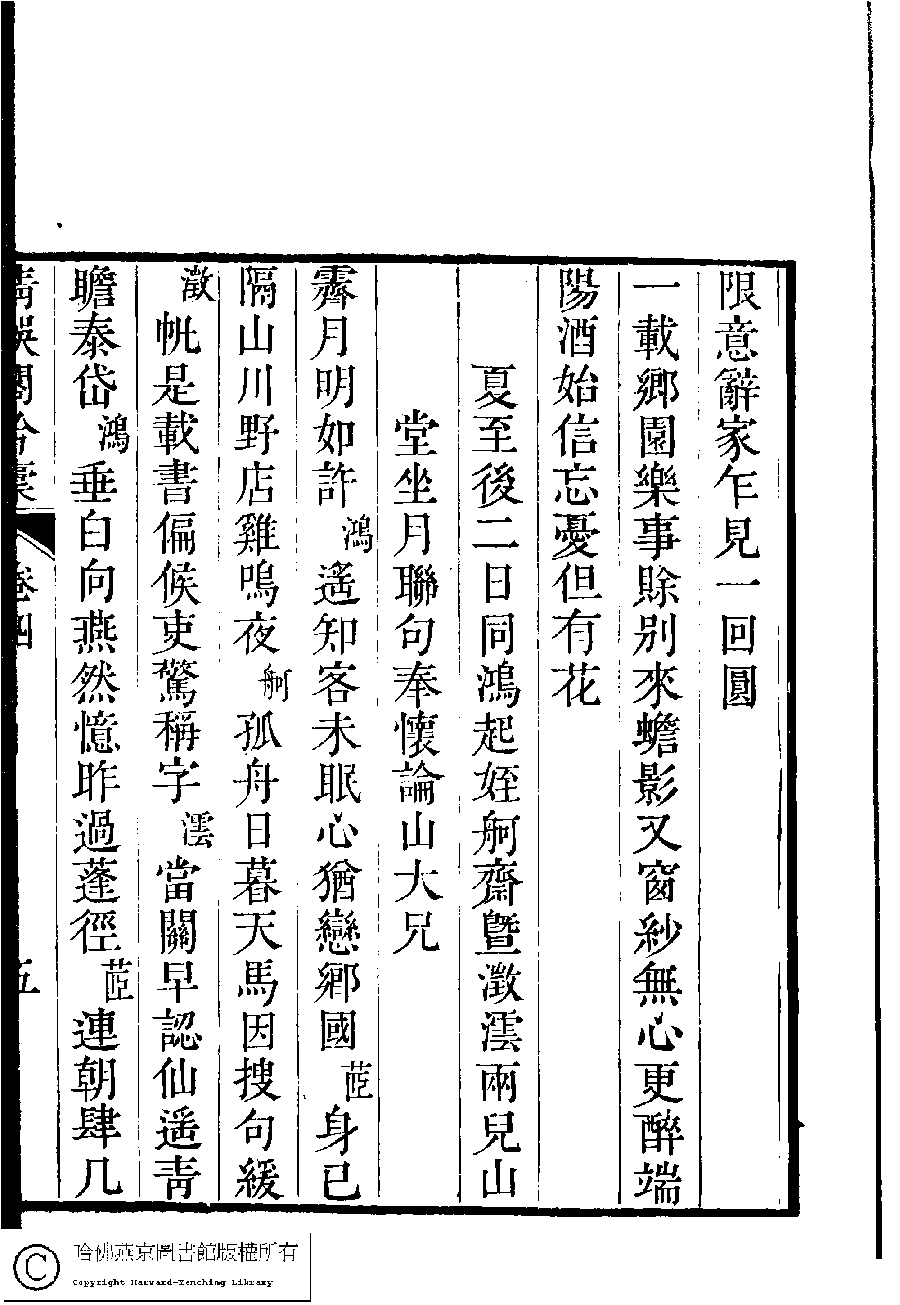 限意辭家乍見一回圓
一載鄉園樂事賒別來蟾影又窗紗無心更醉端
陽酒始信忘憂但有花
夏至後二日同鴻起姪舸齋曁澂澐兩兒山
堂坐月聯句奉懷論山大兄
霽月明如許鴻遙知客未眠心猶戀鄉國茝身已
隔山川野店雞鳴夜舸孤舟日暮天馬因搜句緩
澂帆是載書偏候吏驚稱字澐當關早認仙遙靑
瞻泰岱鴻垂白向燕然憶昨過蓬徑茝連朝肆几
清娛閣吟稾 卷四 五
哈佛燕京圖書館版權所有
Copyright Harvard-Yenching Library